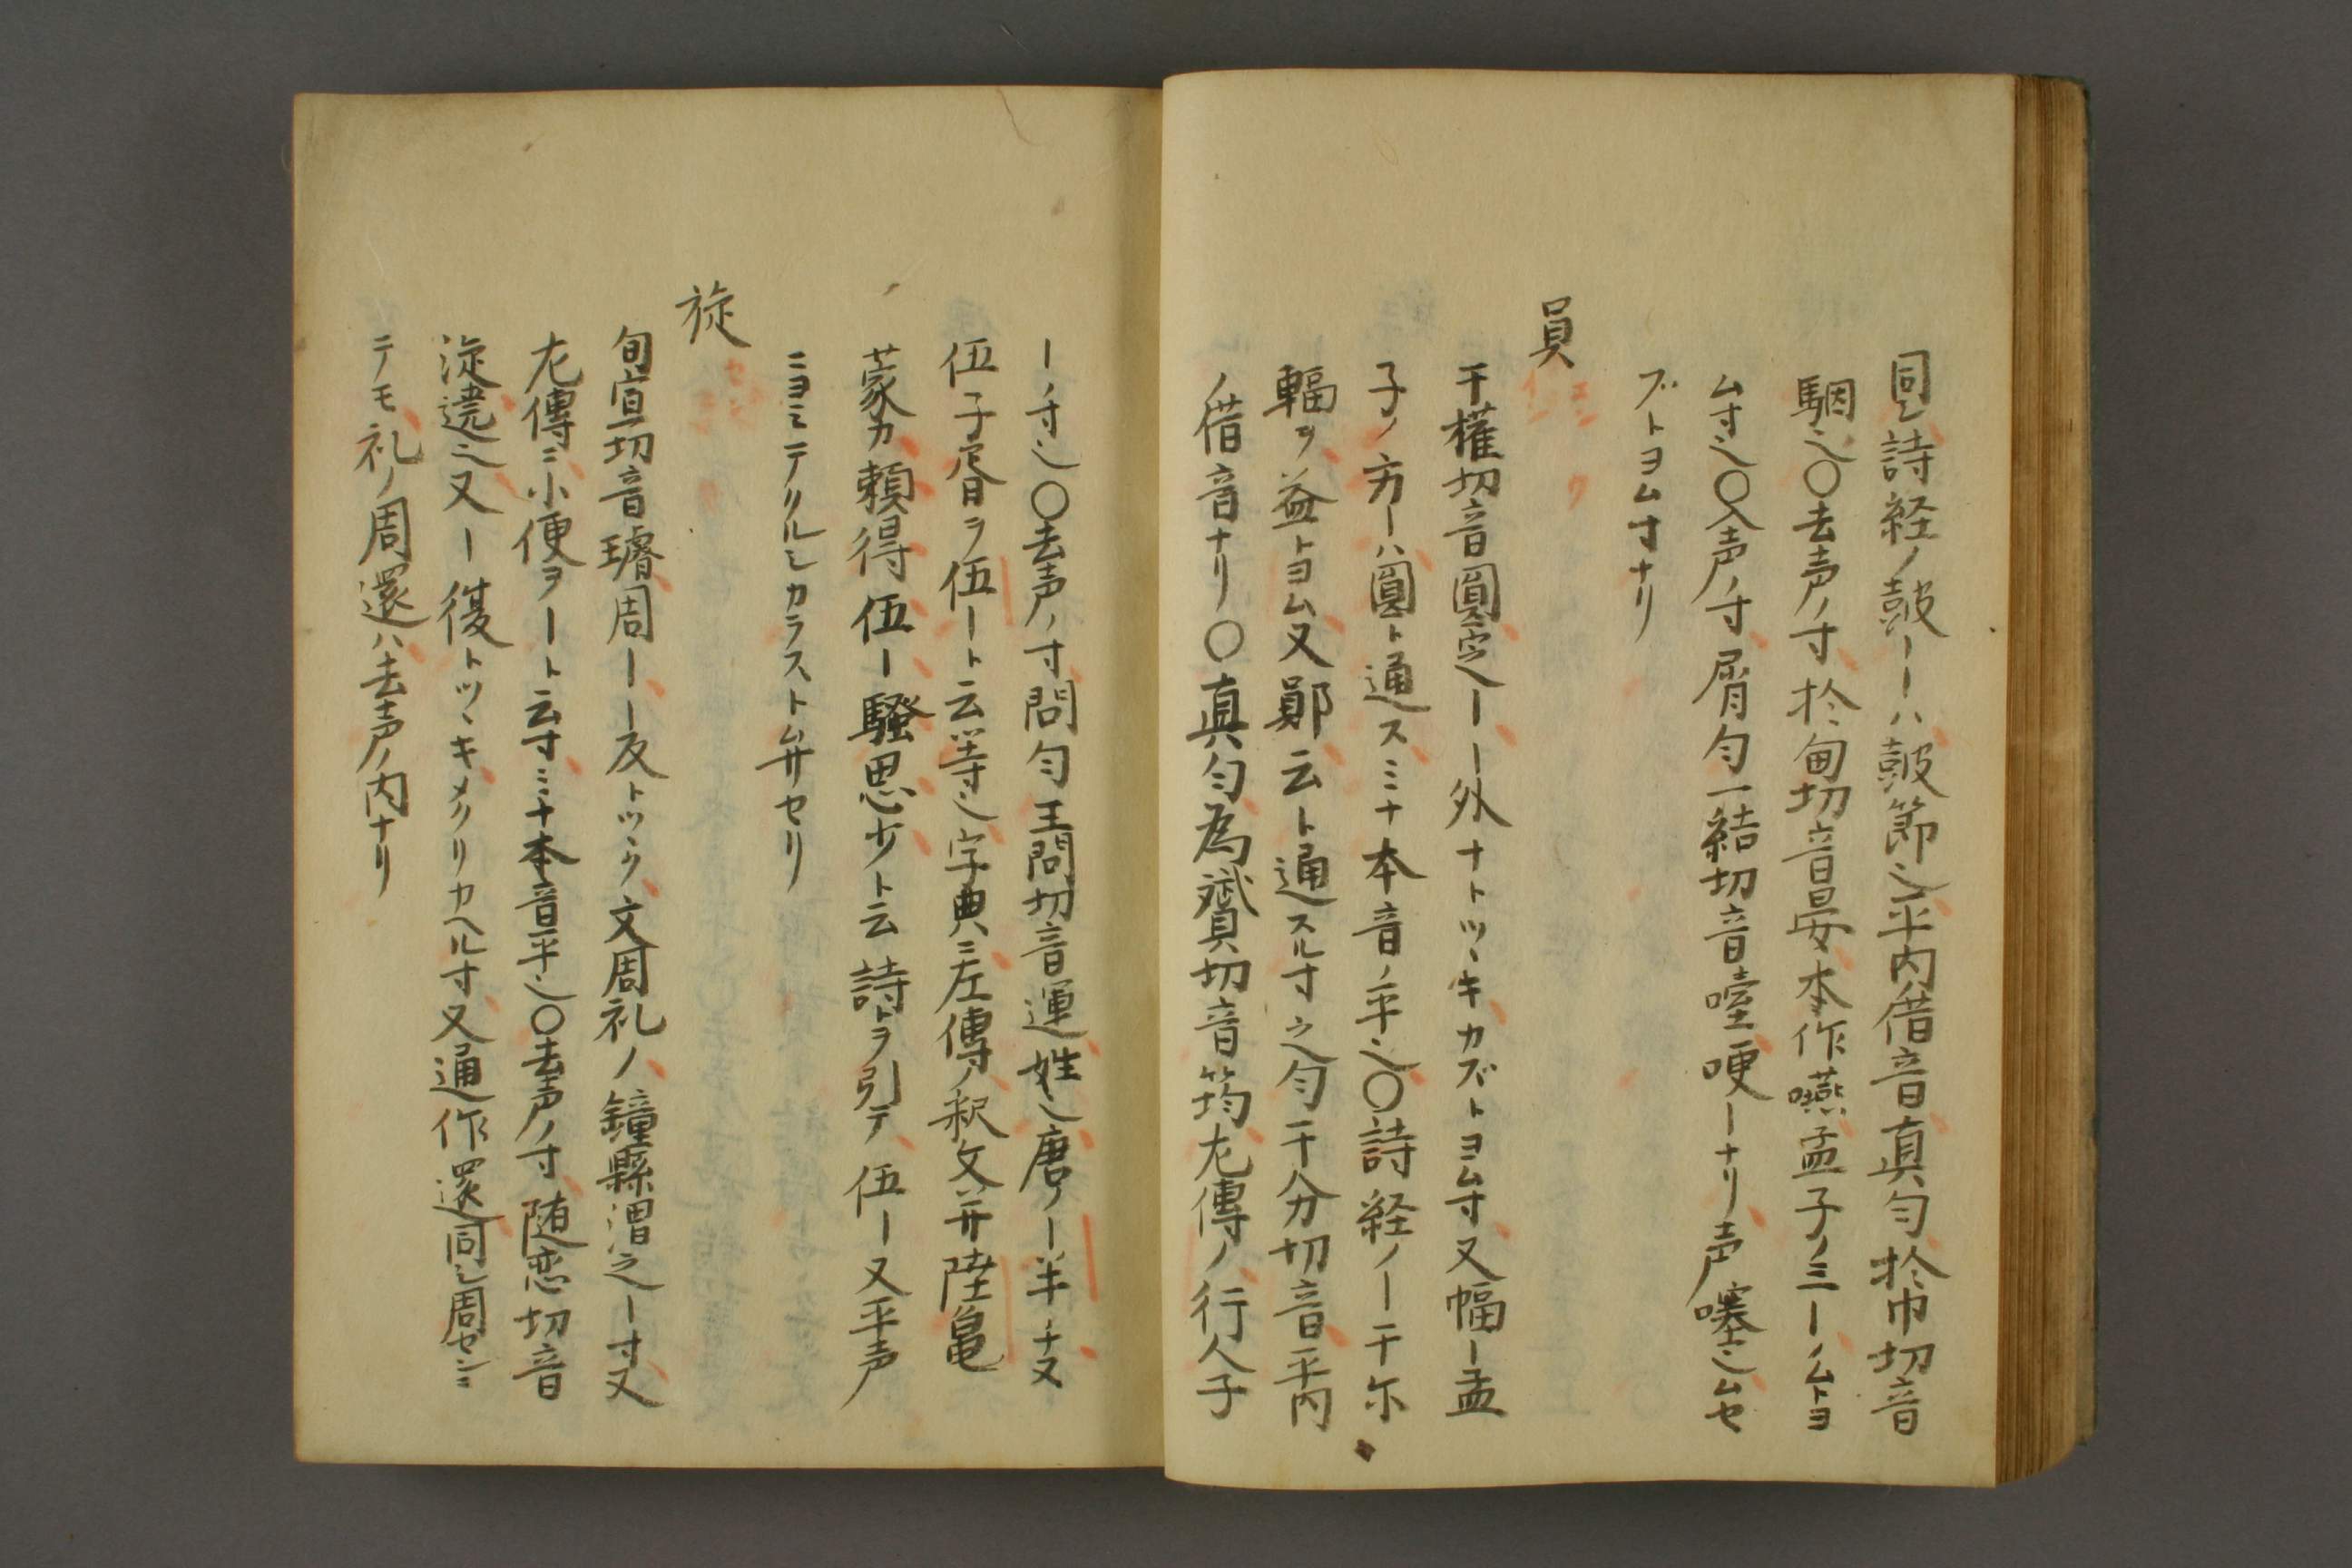 同シ詩経ノ皷ーーハ皷節也平内借音真匀於巾切音
駰也〇去声ノ寸於甸切音晏本作嚥孟子ノ三ーノムトヨ
ム寸也〇入声ノ寸屑匀一結切音噎哽ーナリ声塞也ムセ
ブトヨム寸ナリ
員
エン
イン
ウ
于權切音圓定也ーー外ナトツヽキカズトヨム寸又幅ー孟
子ノ方ーハ圓ト通スミナ本音ノ平也〇詩経ノー于尓
輻ヲ益トヨム又鄖云ト通スル寸文匀于分切音平内
ノ借音ナリ〇真匀為贇切音筠左傳ノ行人子
ーノ寸也〇去声ノ寸問匀王問切音運姓也唐ノー半千又
伍子胥ヲ伍ート云等也字典ニ左傳ノ釈文并陸亀
蒙カ頼得伍ー騒思少ト云詩トヲ引テ伍ー又平声
ニヨミテクルシカラストムセリ
旋
セン
旬宣切音璿周ーー反トツヽク文周礼ノ鐘縣謂之ー寸又
左傳ニ小便ヲート云寸ミナ本音平也〇去声ノ寸随恋切音
淀遶也又ー復トツヽキメクリカヘル寸又通作還同シ周セン
テモ礼ノ周還ハ去声ノ内ナリ